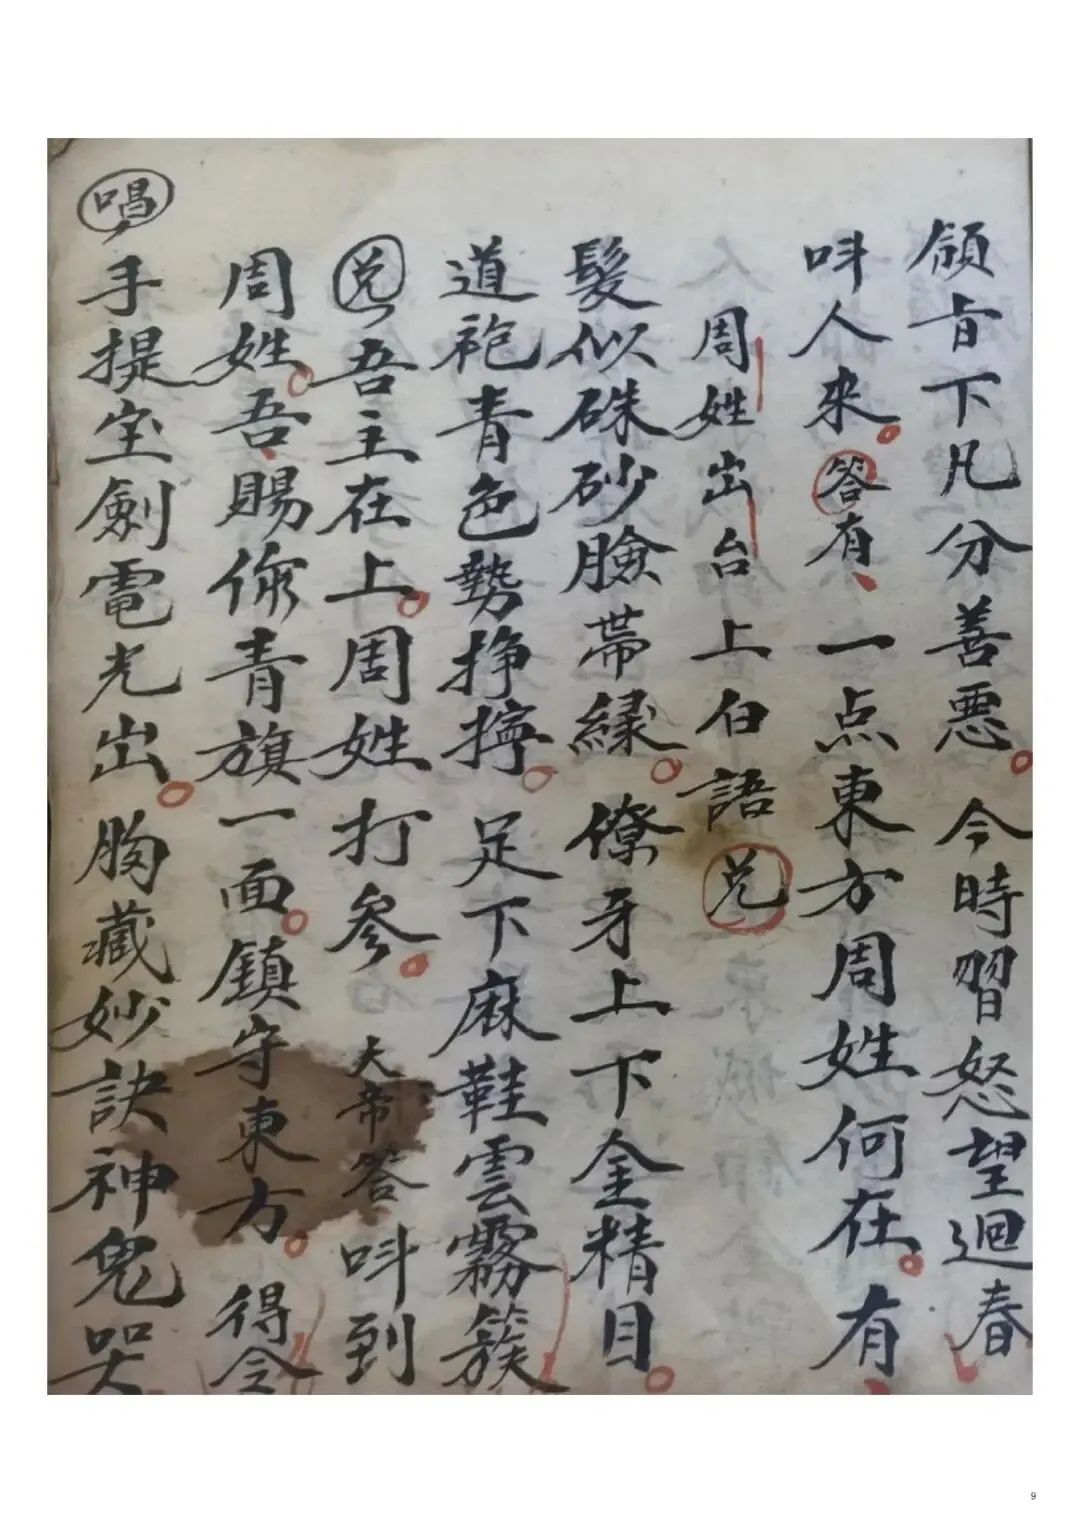 領旨下凡分善悪。今時習怒望迴春
呌人來。答有、一点東方周姓何在。有、
周姓出台上白語 兑
髮似硃砂臉帯緑。僚牙上下金精目。
道袍青色勢挣擰。足下麻鞋雲霧簇
兑 吾主在上。周姓打參。大帝答 呌到
周姓。吾、賜你青旗一面。鎮守東方。得令
唱 手提宝劍電光出。胸藏妙訣神鬼哭
9